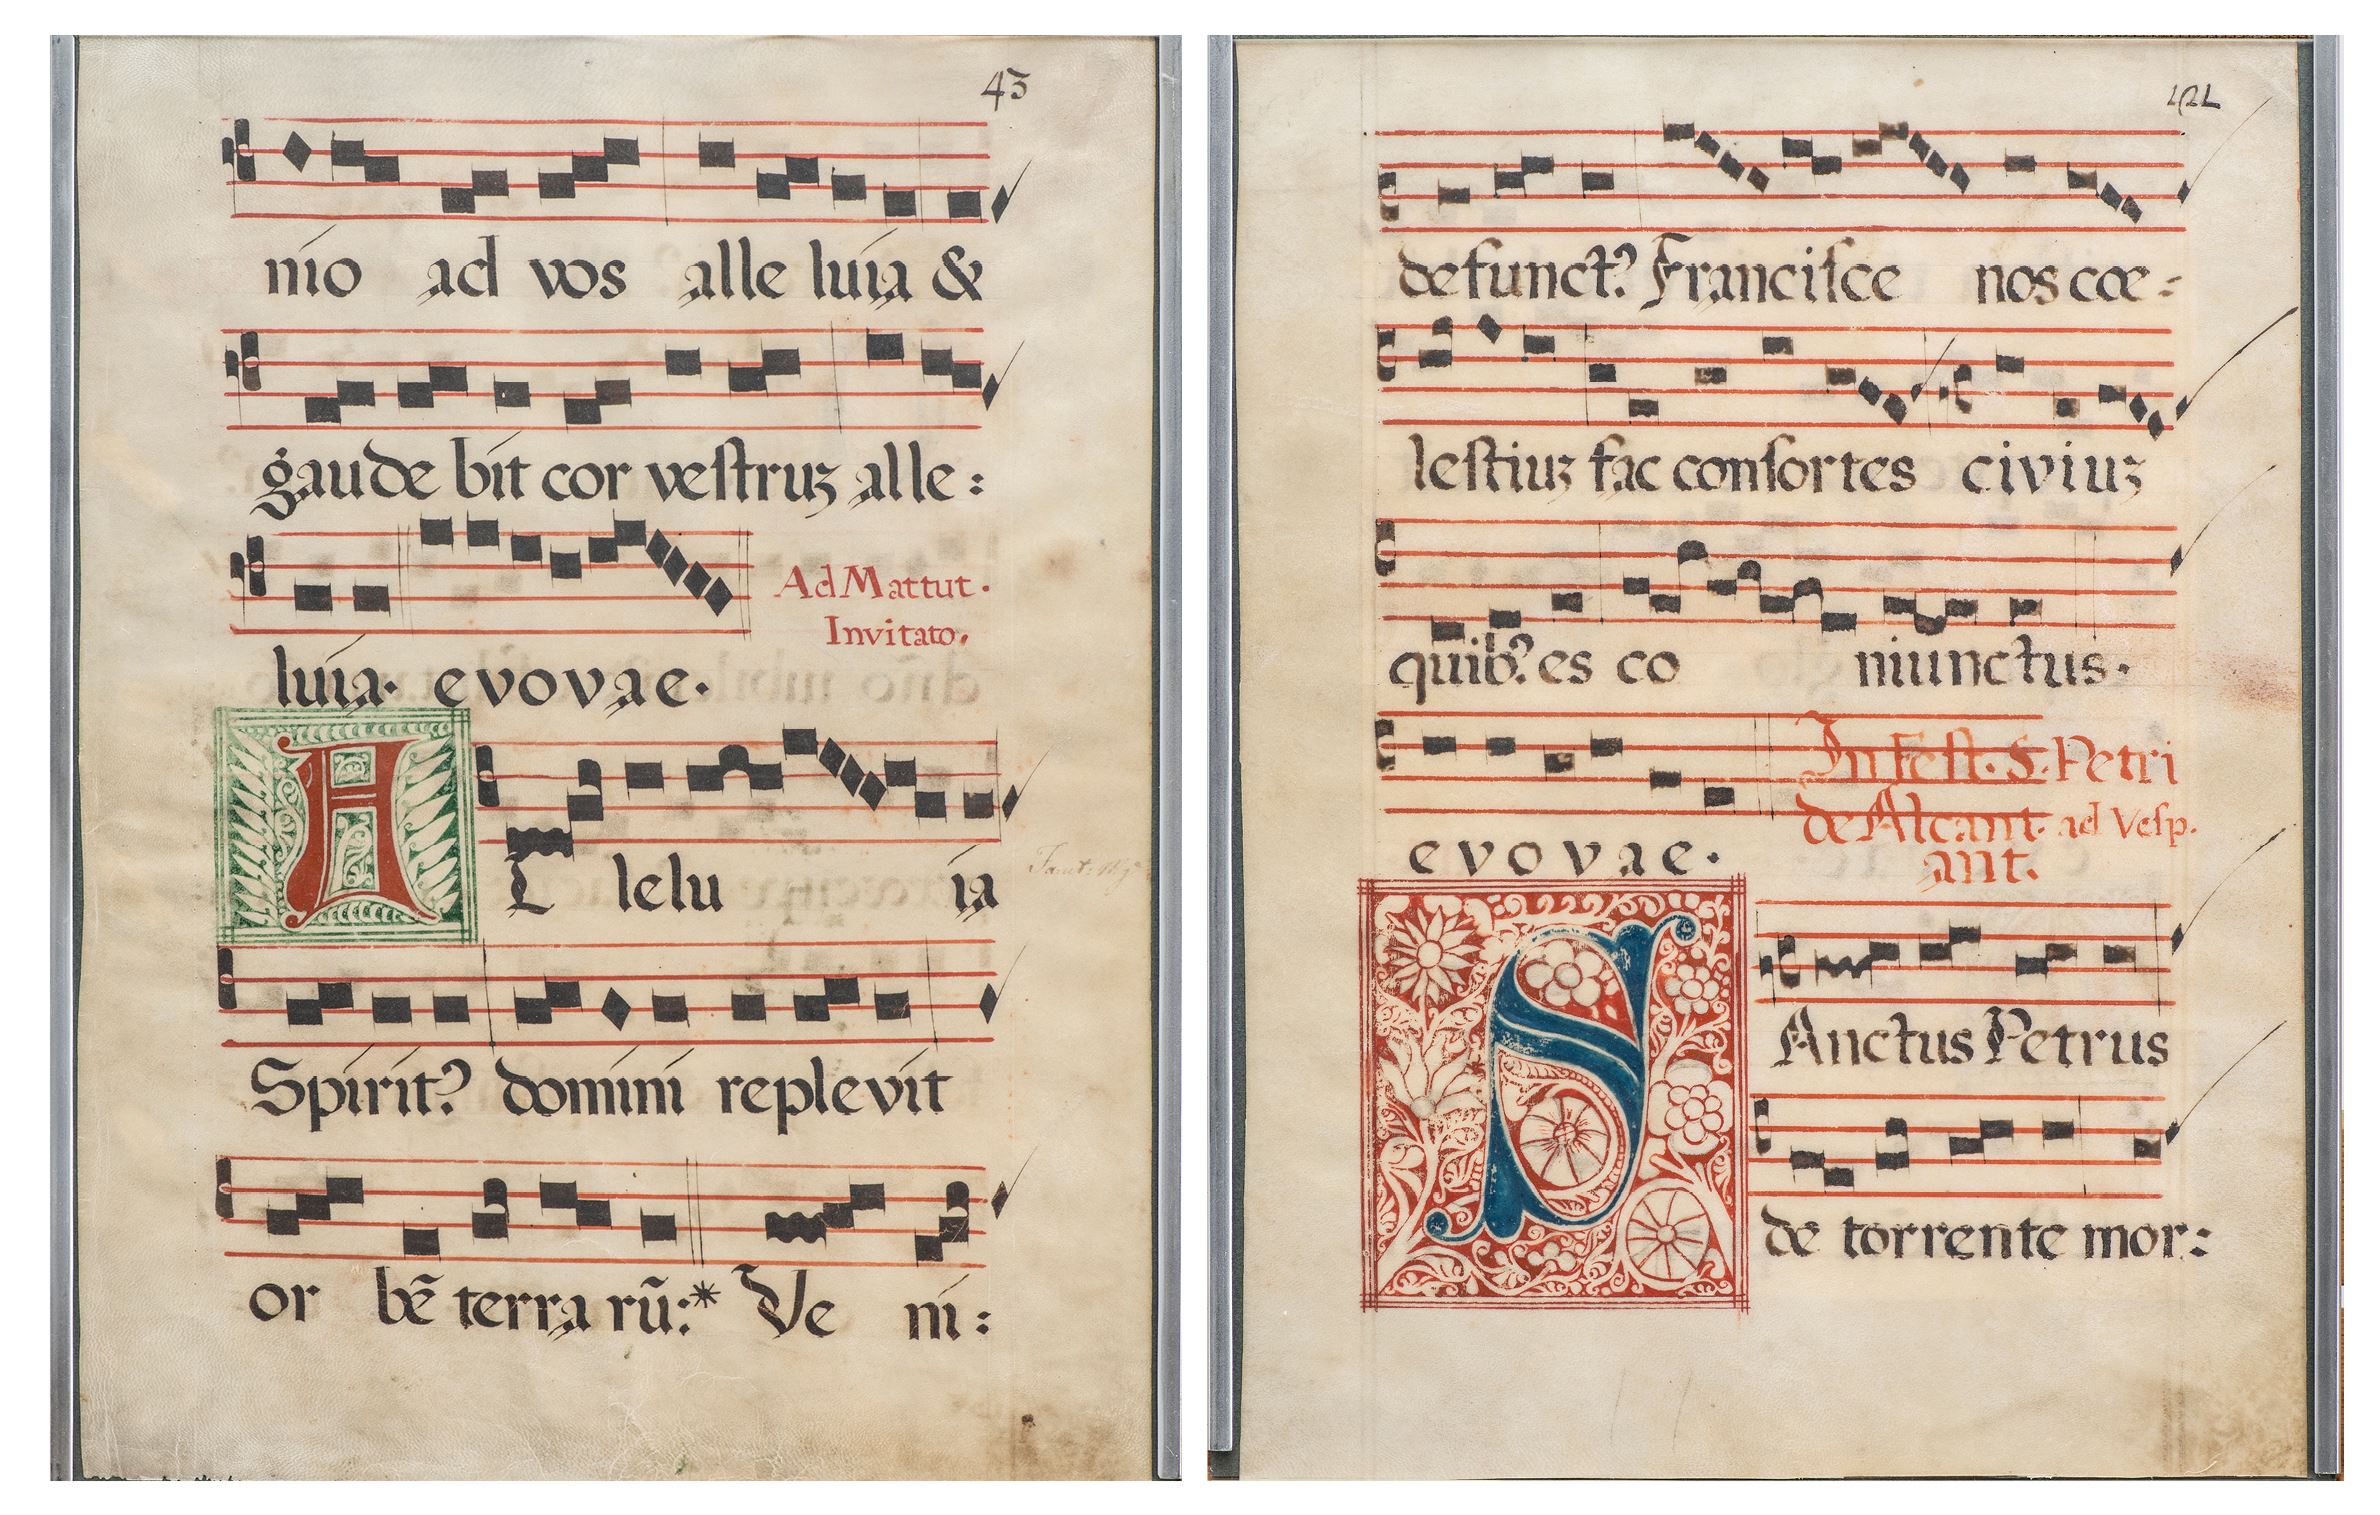 43
nio ad vos alle luia &
gaude bit cor veſtruʒ alle:
Ad Mattut.
Invitato.
luia. evovae.
A L lelu ia
Spirit? domini replevit
or bē terra rū:* Ve ni:
defunct? Franciſce nos cœ-
leſtiuʒ fac conſortes civiuʒ
quib? es co niunctus.
In Feſt. S. Petri
de Alcant. ad Veſp.
ant.
evovae.
S Anctus Petrus
de torrente mor: